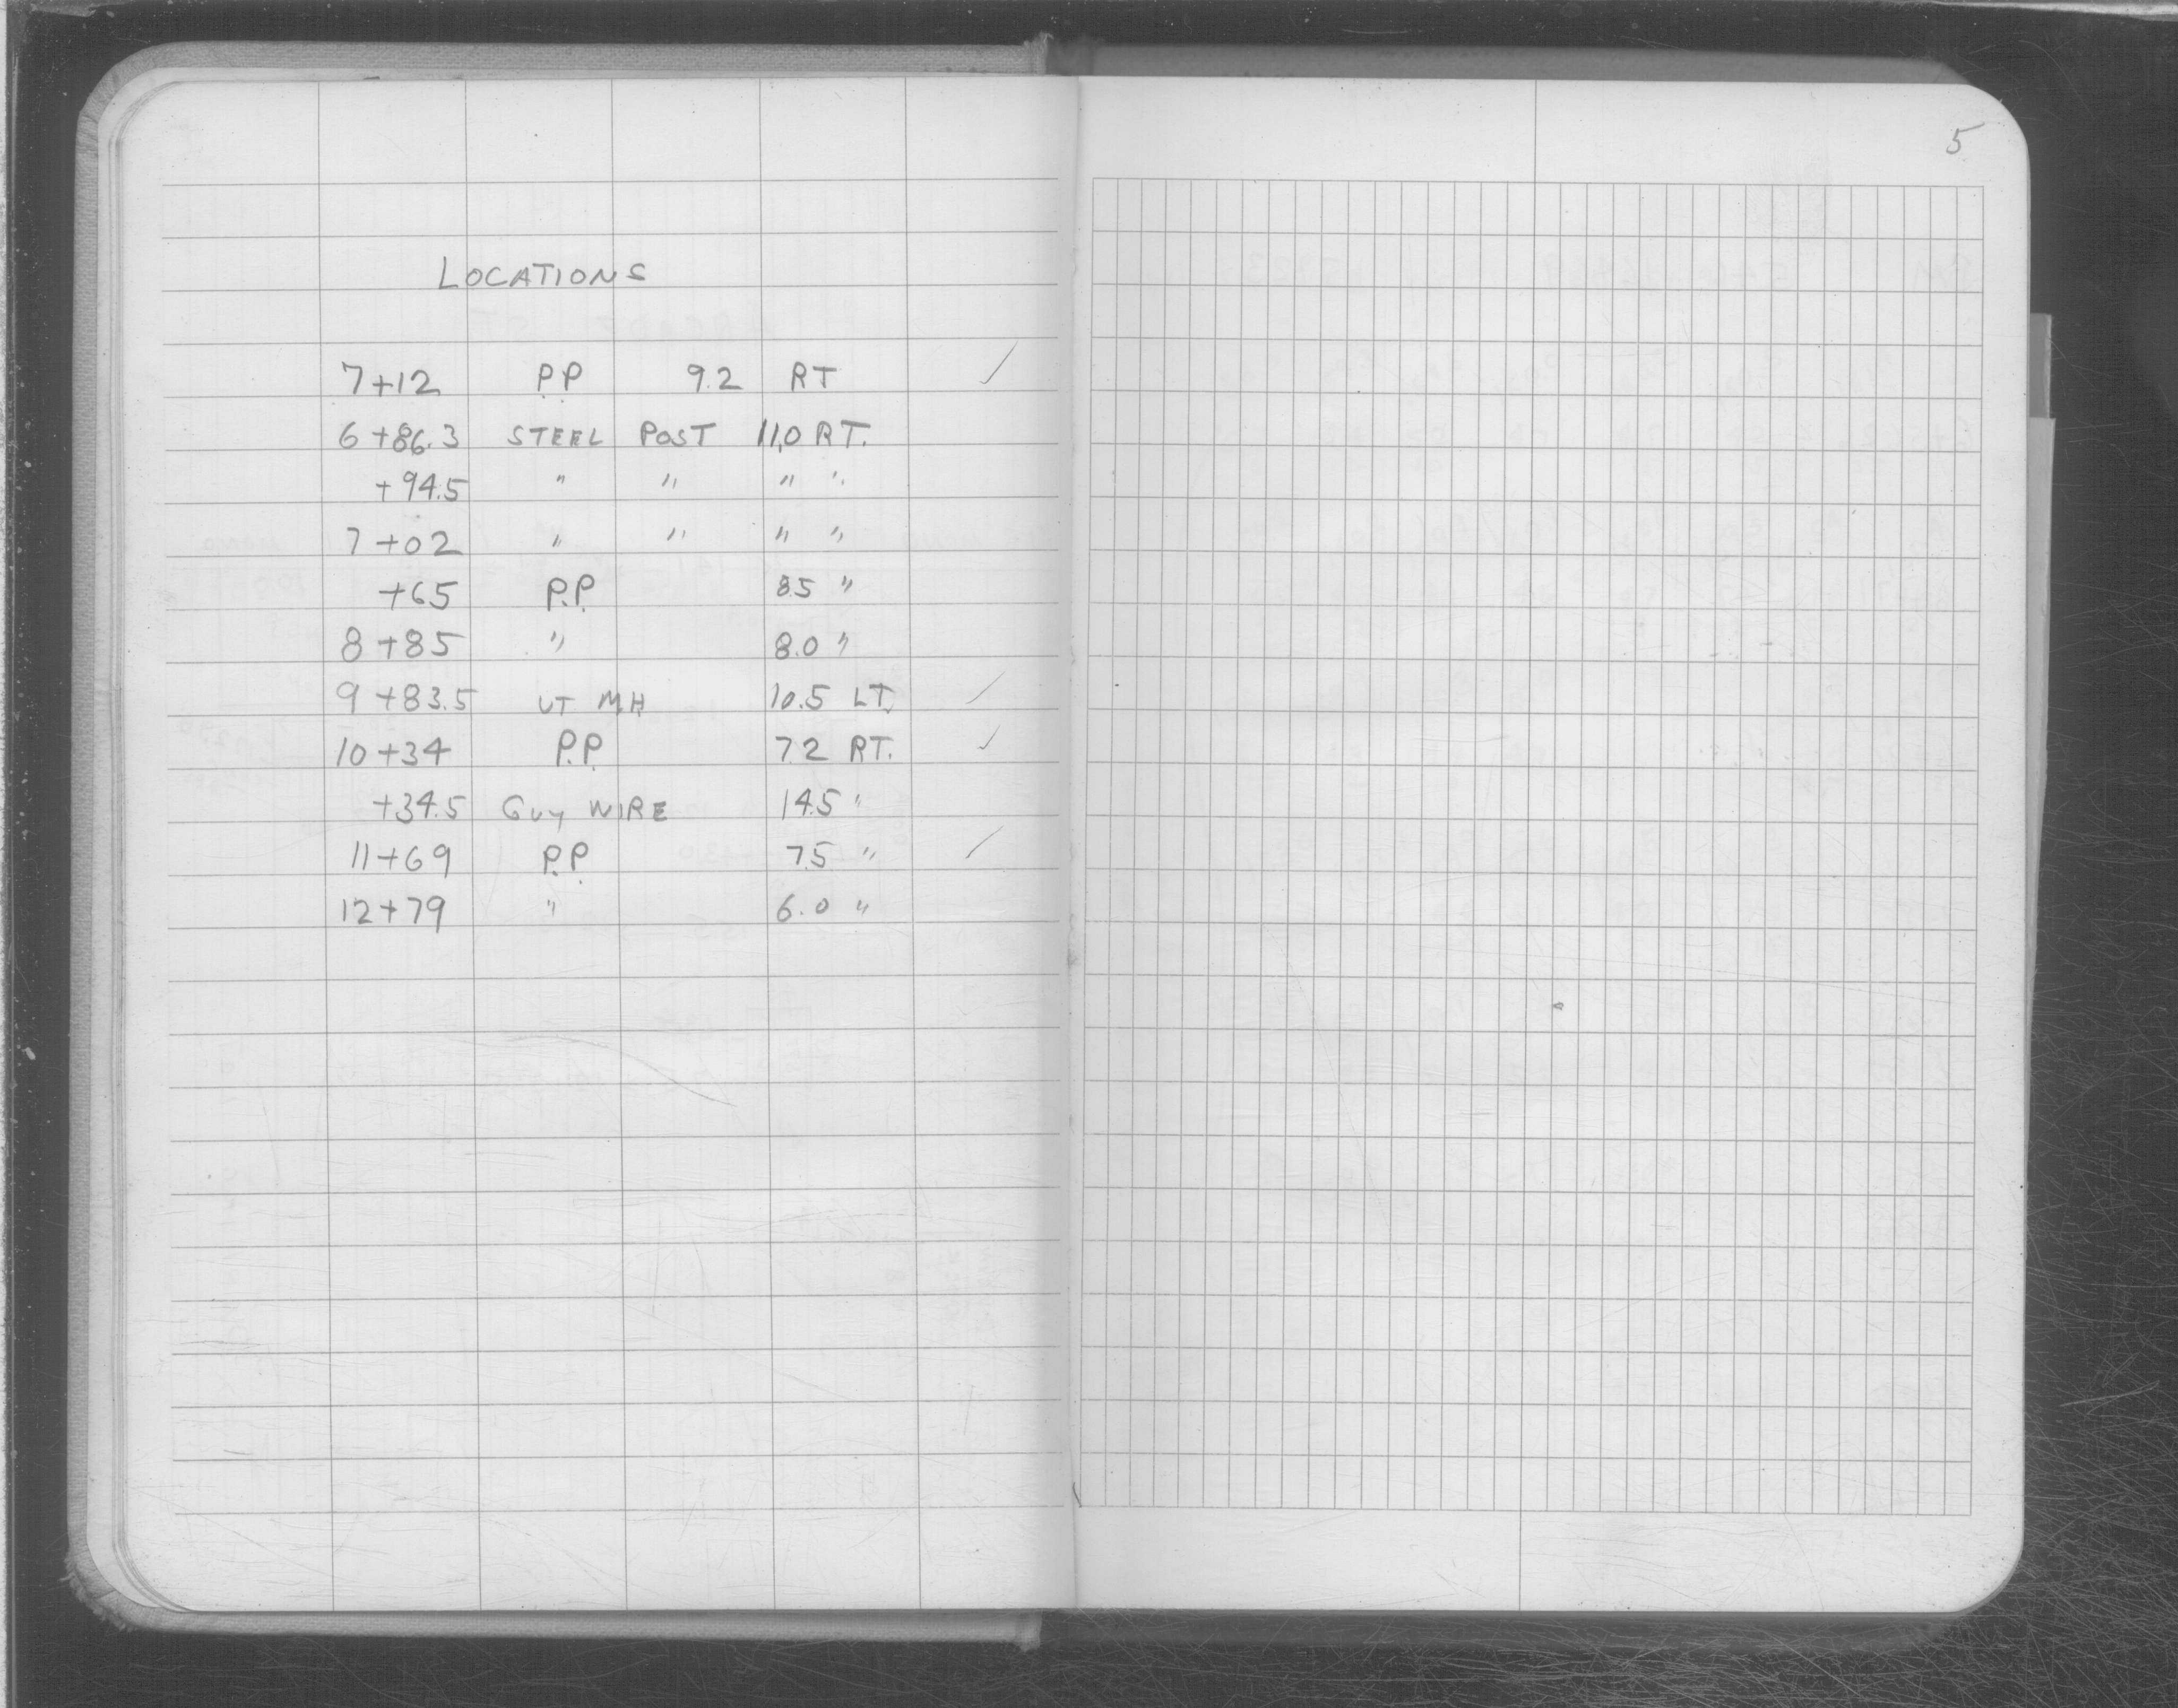 5
LOCATIONS
7+12 P.P 9.2 RT ✓
6+86.3 STEEL POST 11.0 RT.
+94.5 " " " "
7+02 " " " "
+65 P.P. 8.5 "
8+85 " 8.0 "
9+83.5 UT MH 10.5 LT. ✓
10+34 P.P. 7.2 RT. ✓
+34.5 GUY WIRE 14.5 "
11+69 P.P. 7.5 " ✓
12+79 " 6.0 "